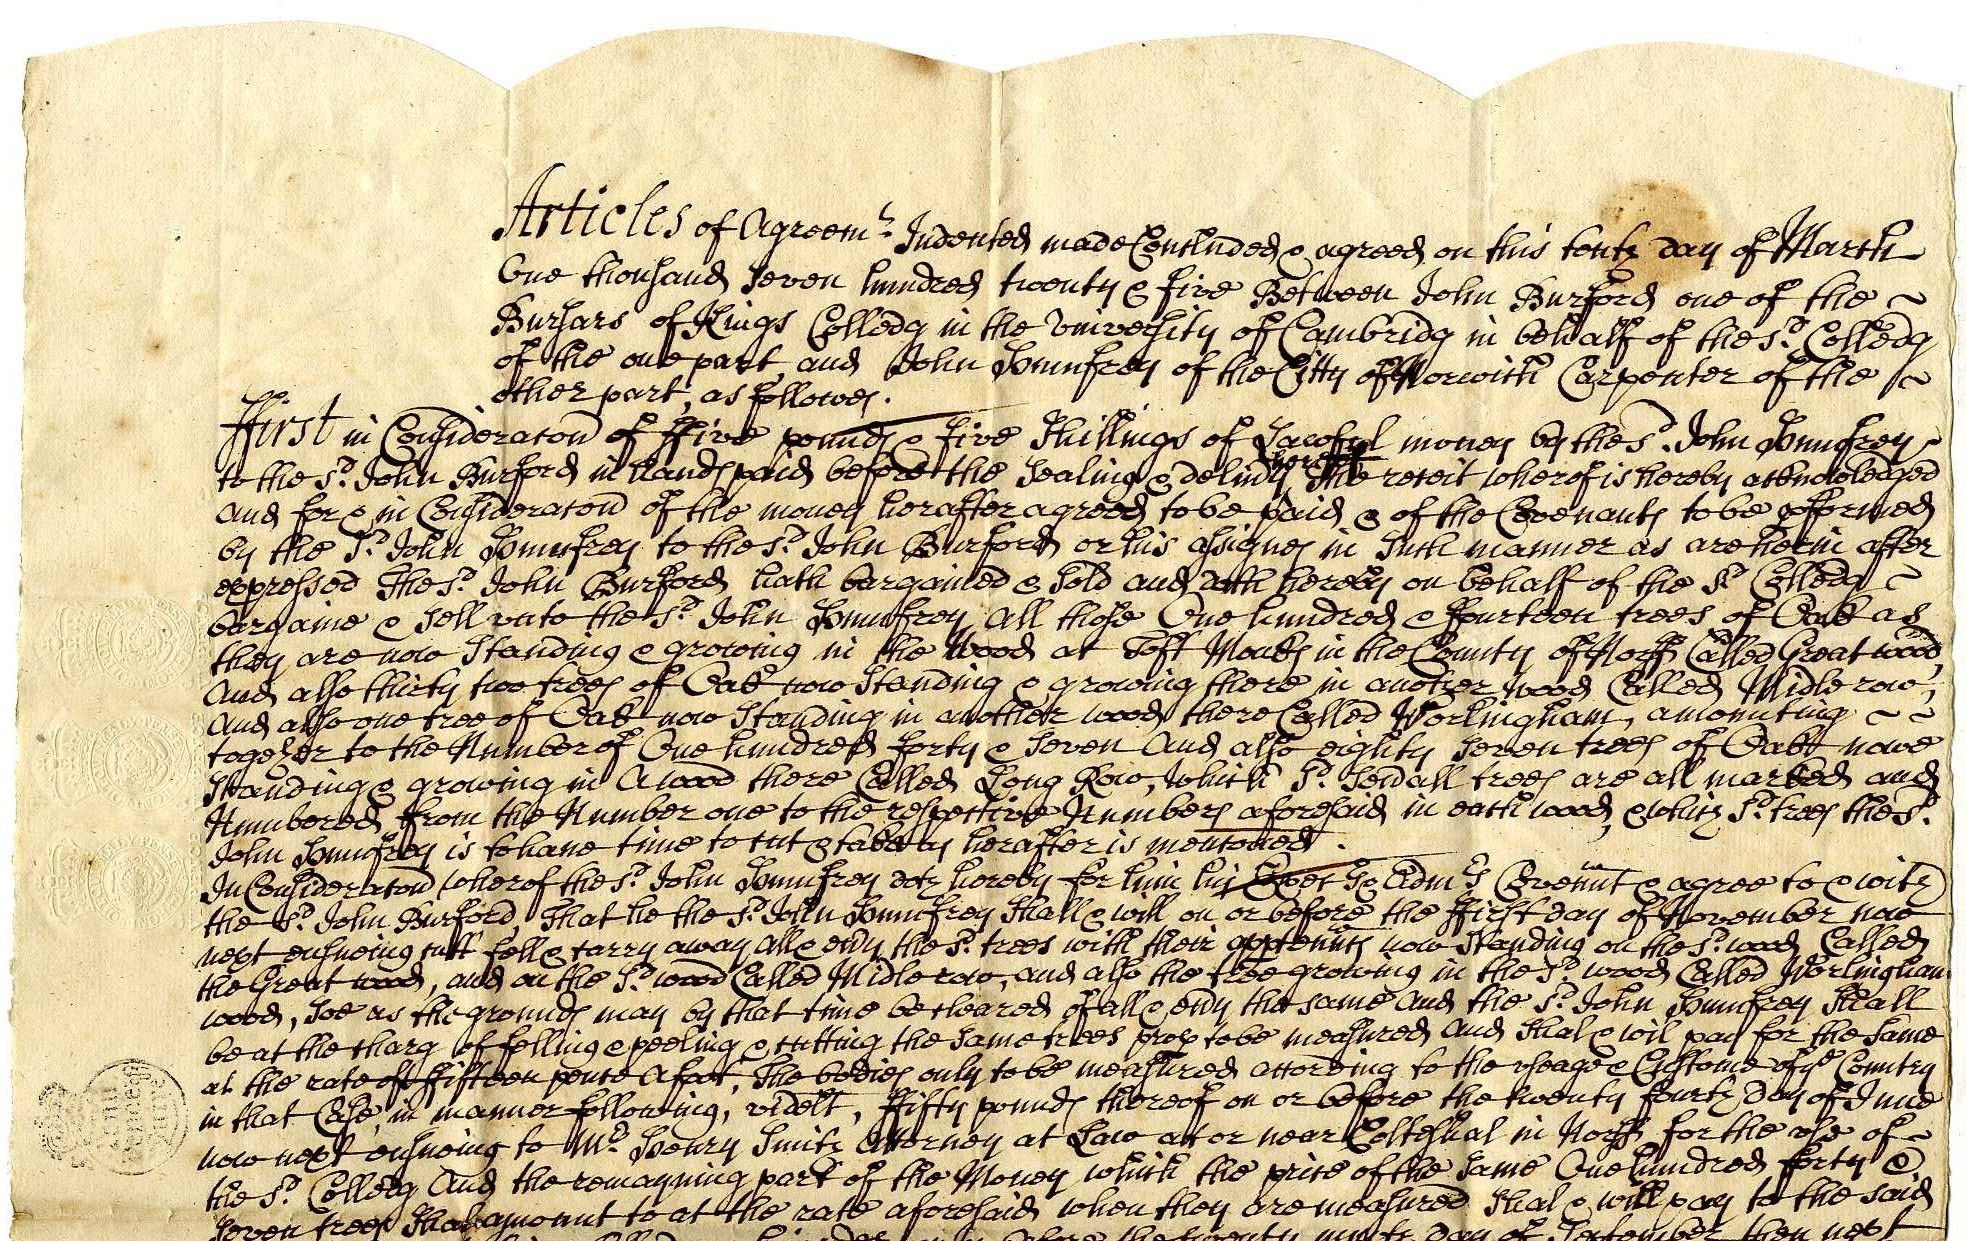 Articles of Agreemt. Indented made Concluded & agreed on this tenth day of March
One thousand Seven hundred twenty & five Between John Burford one of the ~
Bursars of Kings Colledg in the University of Cambridg in behalf of the sd. Colledg
of the one part, and John Humfrey of the Citty of Norwich Carpenter of the ~
other part, as followes.
ffirst in Consideracon of ffive pounds & five Shillings of Lawful money by the sd. John Humfrey ~
to the sd. John Burford in hands paid before the Sealing & delivy hereof The receit wherof is hereby acknowledged
and for & in Consideracon of the money herafter agreed to be paid & of the Covenants to be pformed
by the sd. John Humfrey to the sd. John Burford or his assignes in Such manner as are herin after
expressed The sd. John Burford hath bargained & Sold and doth hereby on behalf of the sd Colledg ~
bargaine & Sell unto the sd. John Humfrey All those One hundred & fourteen trees of Oake as
they are now Standing & growing in the Wood at Toft Monks in the County of Norff Called Great wood,
And also thirty two trees of Oak now Standing & growing there in another wood Called Midle row,
And also one tree of Oak now Standing in another wood there Called Worlingham, amounting ~ ~
together to the Number of One hundred forty & Seven And also eighty Seven trees of Oake nowe
Standing & growing in A wood there Called Long Row, Which sd. Sevall trees are all marked and
Numbered from the Number one to the respective Numbers aforesaid in each wood, & which sd. trees the sd.
John Humfrey is to have time to cut & take as herafter is mentoned.
In Consideracon wherof the sd. John Humfrey doth hereby for him his Exers & Admrs Covennt & agree to & with
the sd. John Burford, That he the sd. John Humfrey Shall & will on or before the ffirst day of November now
next ensueing cutt fell & carry away all & evry the sd. trees with their apptennces now Standing on the sd. wood Called
the Great wood, and on the sd. wood Called Midle row, and also the tree growing in the sd. wood Called Worlingham
wood, Soe as the grounds may by that time be cleared of all & evry the same And the sd. John Humfrey Shall
be at the charg of felling & peeling & cutting the Same trees prop to be measured And Shal & wil pay for the Same
at the rate of ffifteen pence A foot, The bodies only to be measured according to the Usage & Custome of ye Country
in that Case, in manner following, videlt, ffifty pounds thereof on or before the twenty fourth Day of June
now next ensueing to Mr. Henry Smith Attorney at Law at or near Coltishal in Norff. for the use of ~
the sd. Colledg And the remayning part of the Money which the price of the Same One hundred forty &
Seven trees Shal amount to at the rate aforesaid when they are measured Shal & will pay to the said
before the twenty ninth Day of September then next